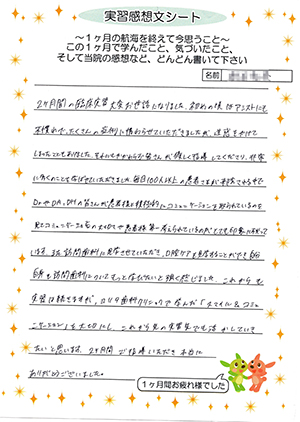 実習感想文シート
～1ヶ月の航海を終えて今思うこと～
この1ヶ月で学んだこと、気づいたこと、
そして当院の感想など、どんどん書いて下さい
名前
2ヶ月間の臨床実習大変お世話になりました。初めの頃はアシストにも
不慣れで、たくさんの症例に携わらせていただきましたが、迷惑をかけて
しまったこともありました。それにもかかわらず皆さんが優しく指導してくださり、非常
に多くのことを学ばせていただきました。毎日100人以上の患者さまが来院される中で
DrやDA、DHの皆さんが患者様と積極的にコミュニケーションを取られているのを
見てコミュニケーションの大切さや患者様第一に考えられているのがとても印象に残って
います。また訪問歯科に見学させていただき、口腔ケアを見学することができ
自身も訪問歯科についてもっと学びたいと強く感じました。これからも
実習は続きますが、ロリタ歯科クリニックで学んだ「スマイル&コミュ
ニケーション」を大切にし、これから先の実習先でも活かしていき
たいと思います。2ヶ月間ご指導いただき本当に
ありがとうございました。
1ヶ月間お疲れ様でした